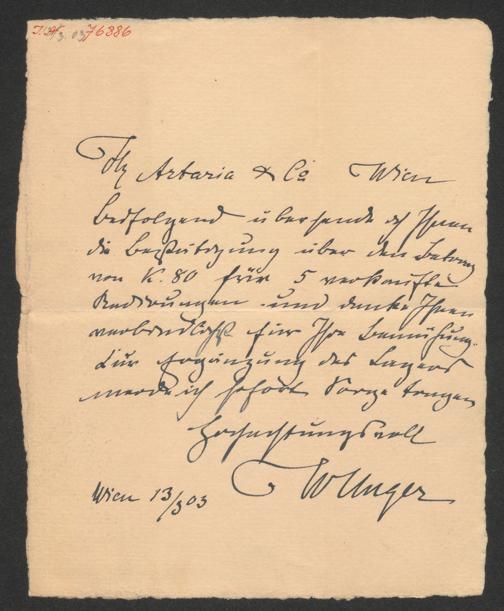 76886
Artaria & Co Wien
Beifolgend übersende ich Ihnen
die Bestätigung über den Betrag
von K. 80 für 5 verkaufte
Radirungen und danke Ihnen
verbindlichst für Ihre Bemühung.
Zur Ergänzung des Lagers
werde ich sofort Sorge tragen
Hochachtungsvoll
W Unger
Wien 13/3 03